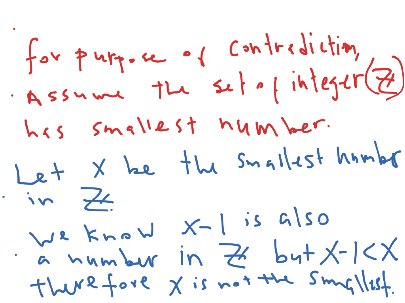 for purpose of contradiction,
Assume the set of integer (ℤ)
has smallest number.
Let X be the smallest number
in ℤ.
We know X-1 is also
a number in ℤ but X-1<X
therefore X is not the smallest.